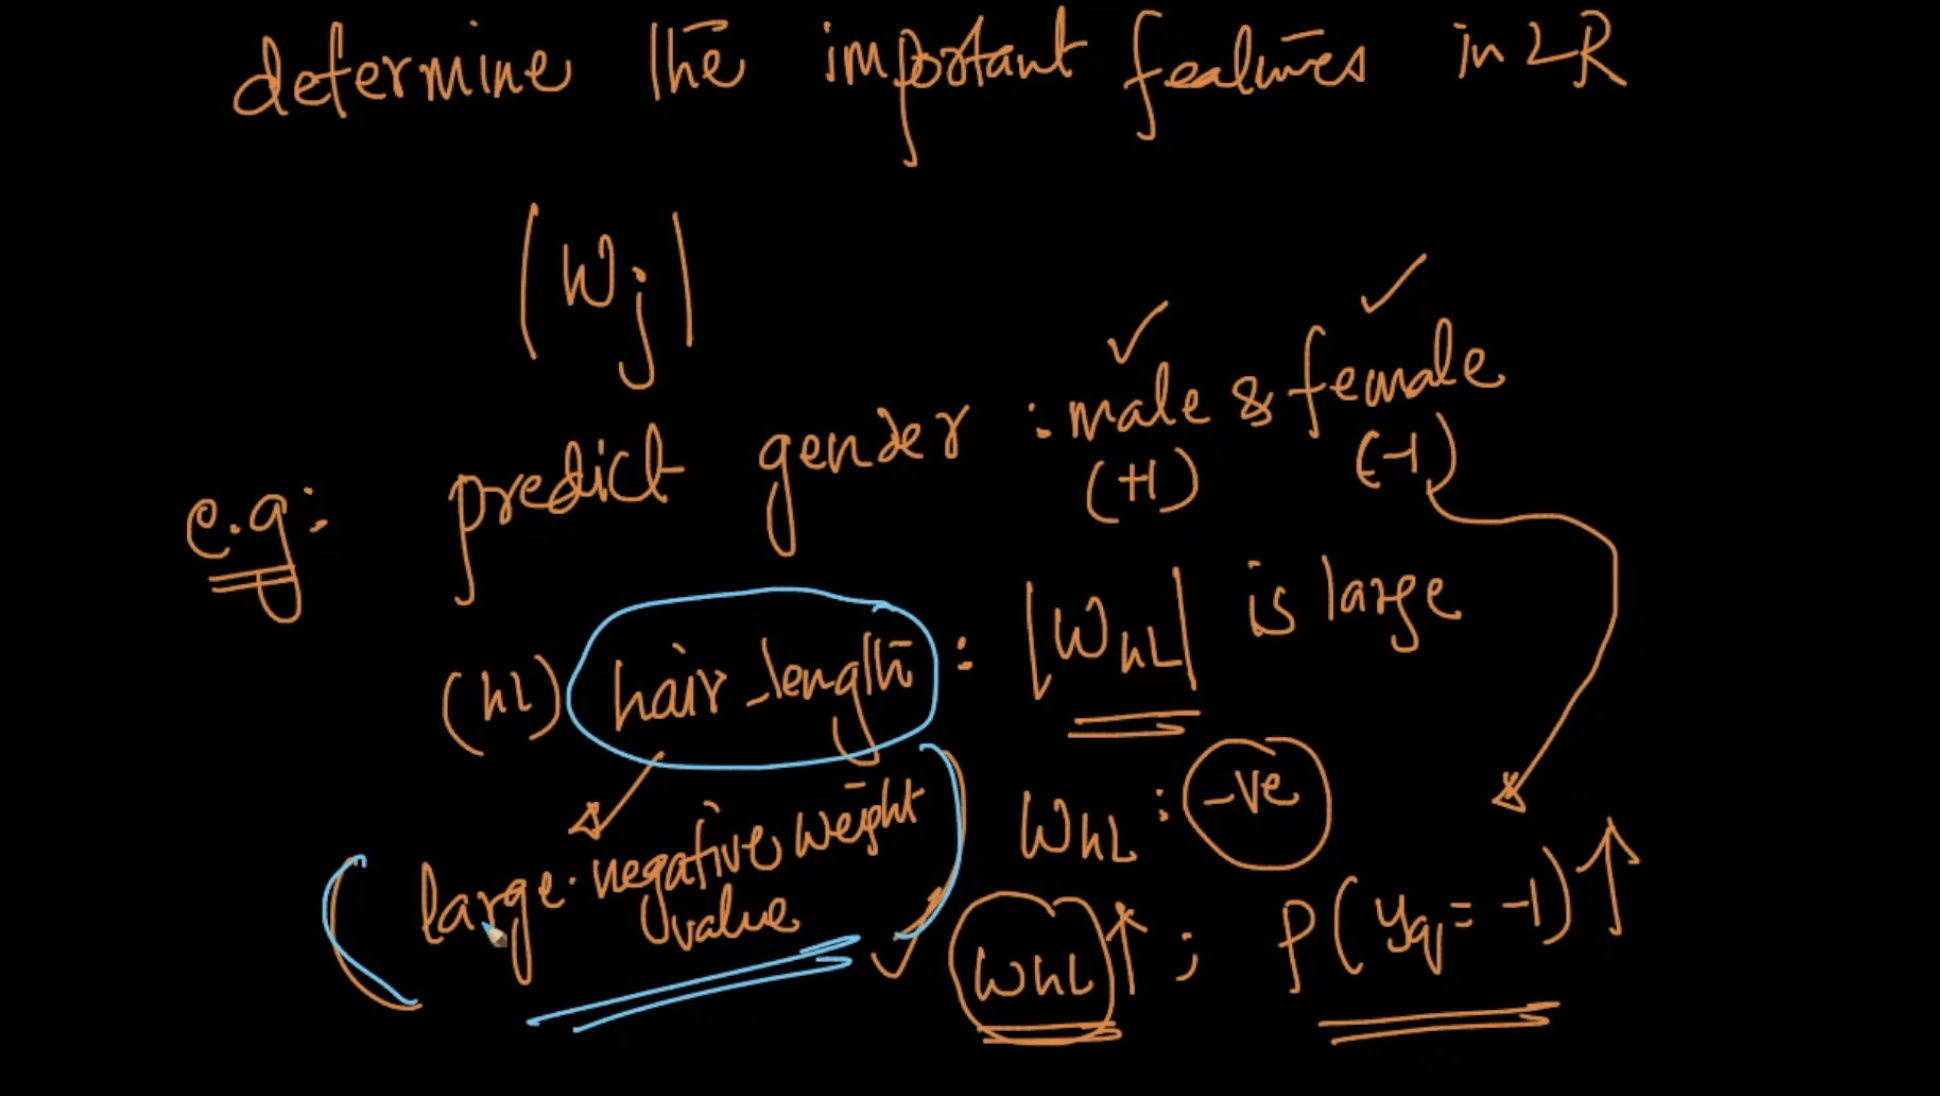 determine the important features in LR
|Wj|
e.g: predict gender : male & female
(+1) (-1)
(hl) hair_length : |WhL| is large
large negative weight value
WhL : -ve
WhL ↑ ; P(yq = -1) ↑